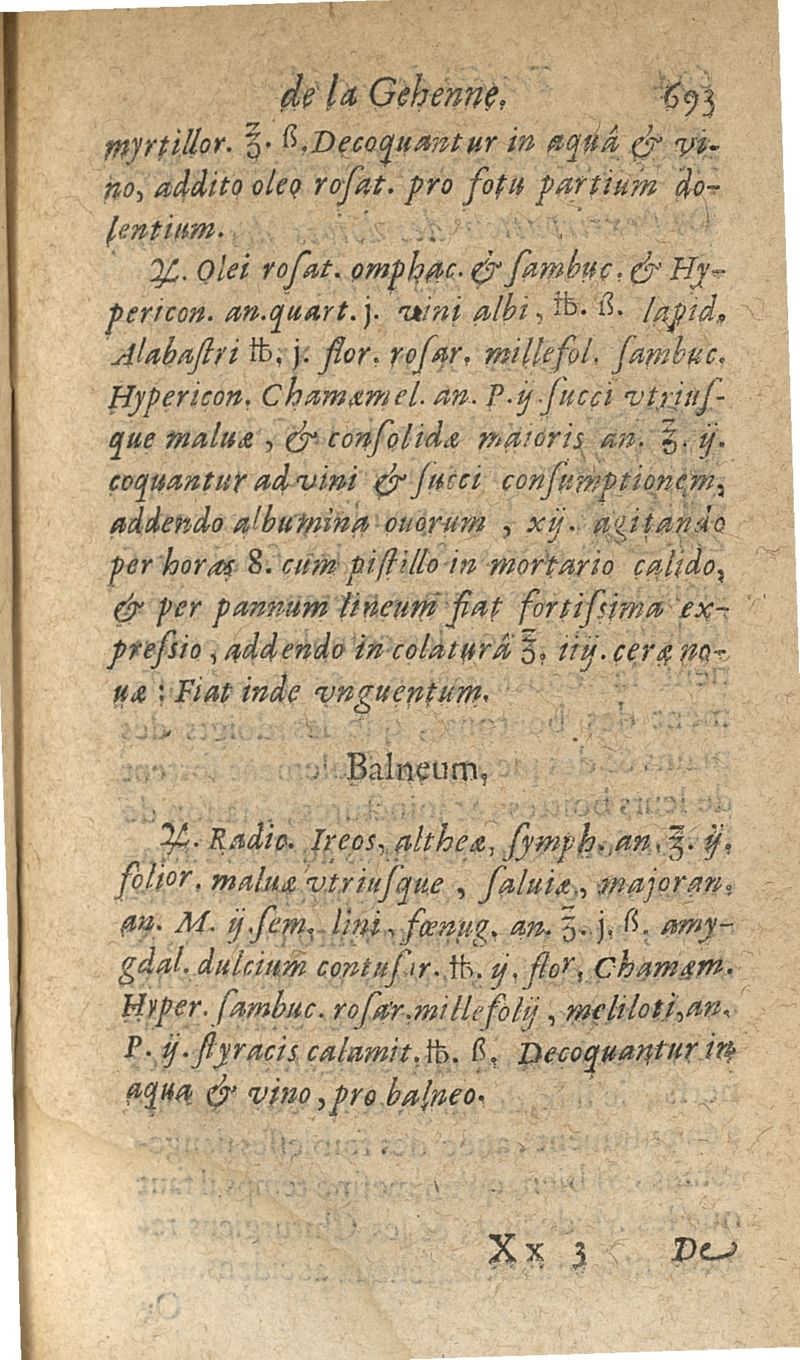 de la Gehenne. 693
myrtillor. ℥. ß. Decoquantur in aquâ & vi-
no, addito oleo roſat. pro fotu partium do-
lentium.
℞. Olei roſat. omphac. & ſambuc. & Hy-
pericon. an. quart. j. vini albi, ℔. ß. lapid.
Alabaſtri ℔. j. flor. roſar. millefol. ſambuc.
Hypericon. Chamæmel. an. P. ij. ſucci vtriuſ-
que maluæ, & conſolidæ maioris an. ℥. ij.
coquantur ad vini & ſucci conſumptionem,
addendo albumina ouorum, xij. agitando
per horas 8. cum piſtillo in mortario calido,
& per pannum lineum fiat fortiſsima ex-
preſsio, addendo in colaturâ ℥. iiij. ceræ no-
uæ: Fiat inde vnguentum.
Balneum.
℞. Radic. Ireos, altheæ, ſymph. an. ℥. ij.
folior. maluæ vtriuſque, ſaluiæ, majoran.
an. M. ij. ſem. lini, fœnug. an. ℥. j. ß. amy-
gdal. dulcium contuſar. ℔. ij. flor. Chamæm.
Hyper. ſambuc. roſar. millefolij, meliloti, an.
P. ij. ſtyracis calamit. ℔. ß. Decoquantur in
aqua & vino, pro balneo.
Xx 3 De